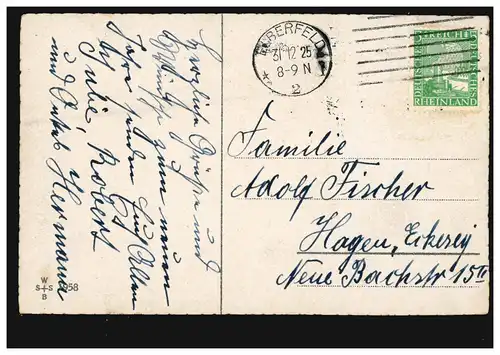 Herzliche Grüße und
Wünsche zum neuen
Jahre senden Euch Allen
Julie Robert
und Onkel Hermann
W
S + S 7958
B
ELBERFELD
31 12 25
8-9 N
* 2
DEUTSCHES REICH
DEUTSCHES
RHEINLAND
Familie
Adolf Fischer
Hagen, Eckesey
Neue Bachstr 15 II